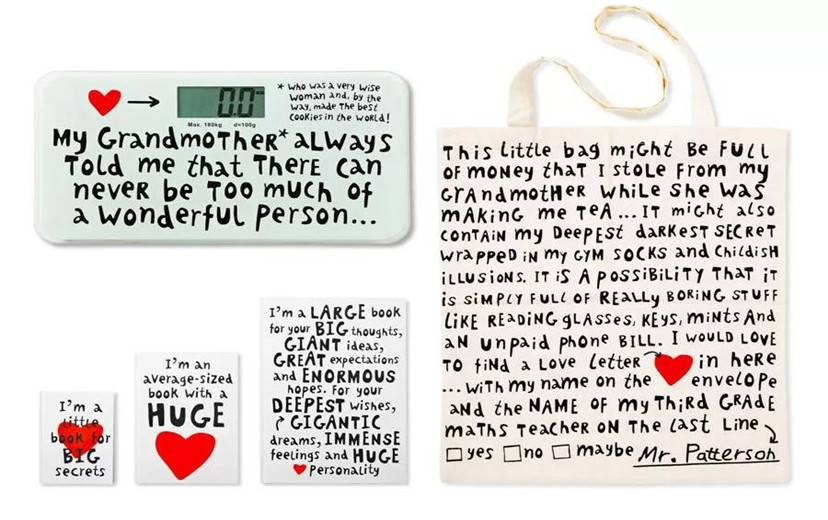 0.0
Max. 180kg d=100g
* Who was a very wise
woman and, by the
way, made the best
cookies in the world!
My Grandmother* always
told me that there can
never be too much of
a wonderful person...
I'm a
little
book for
BIG
secrets
I'm an
average-sized
book with a
HUGE
I'm a LARGE book
for your BIG thoughts,
GIANT ideas,
GREAT expectations
and ENORMOUS
hopes. For your
DEEPEST wishes,
GIGANTIC
dreams, IMMENSE
feelings and HUGE
personality
This little bag might be full
of money that I stole from my
grandmother while she was
making me tea... It might also
contain my deepest darkest secret
wrapped in my gym socks and childish
illusions. It is a possibility that it
is simply full of really boring stuff
like reading glasses, keys, mints and
an unpaid phone bill. I would love
to find a love letter in here
...with my name on the envelope
and the name of my third grade
maths teacher on the last line
yes no maybe Mr. Patterson